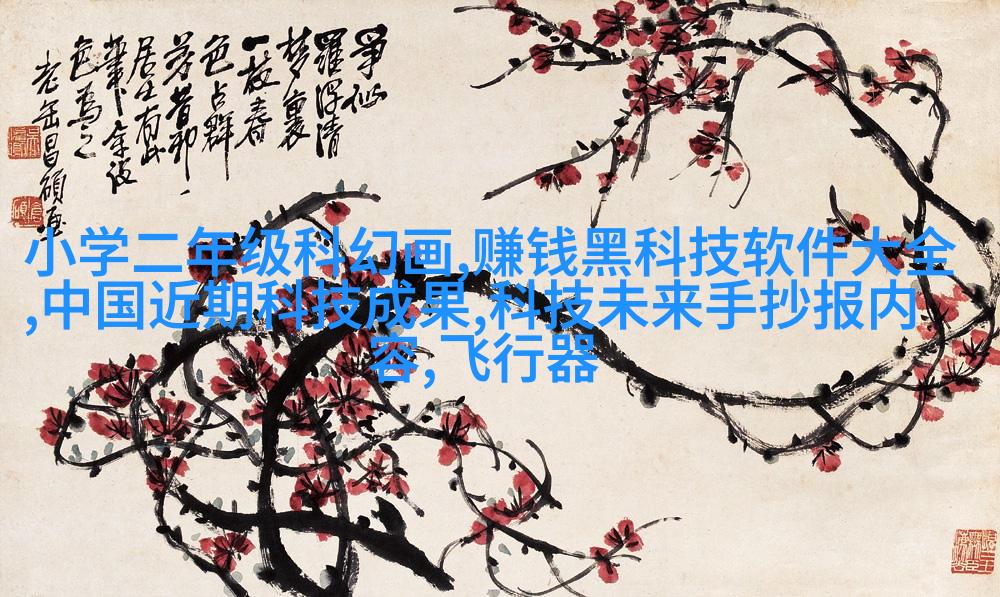 争似
罗浮清
梦里
一枝春
色占群
芳昔
居士有此
笔余
色为之
老缶昌硕画
小学二年级科幻画,赚钱黑科技软件大全
,中国近期科技成果,科技未来手抄报内
容, 飞行器